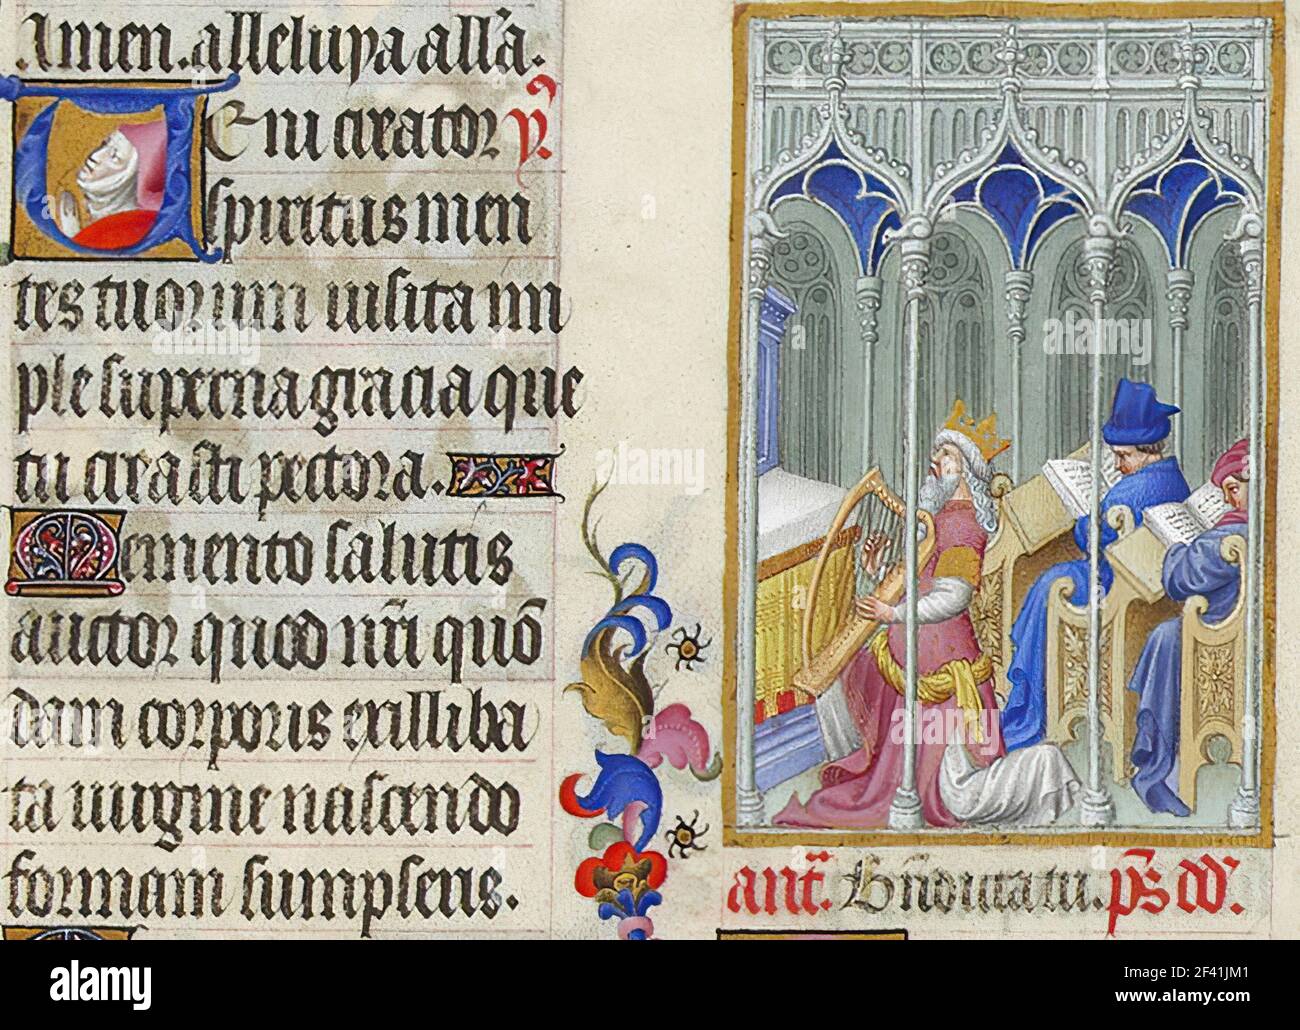 Amen. alleluya all'a.
Veni creator y.
spiritus men
tes tuorum visita im
ple superna gracia que
tu creasti pectora.
Memento salutis
auctor quod nr̄i quō
dam corporis ex illiba
ta virgine nascendo
formam sumpseris.
ant. Bn̄dicta tu. ps dd.
alamy
Image ID: 2F41JM1
www.alamy.com